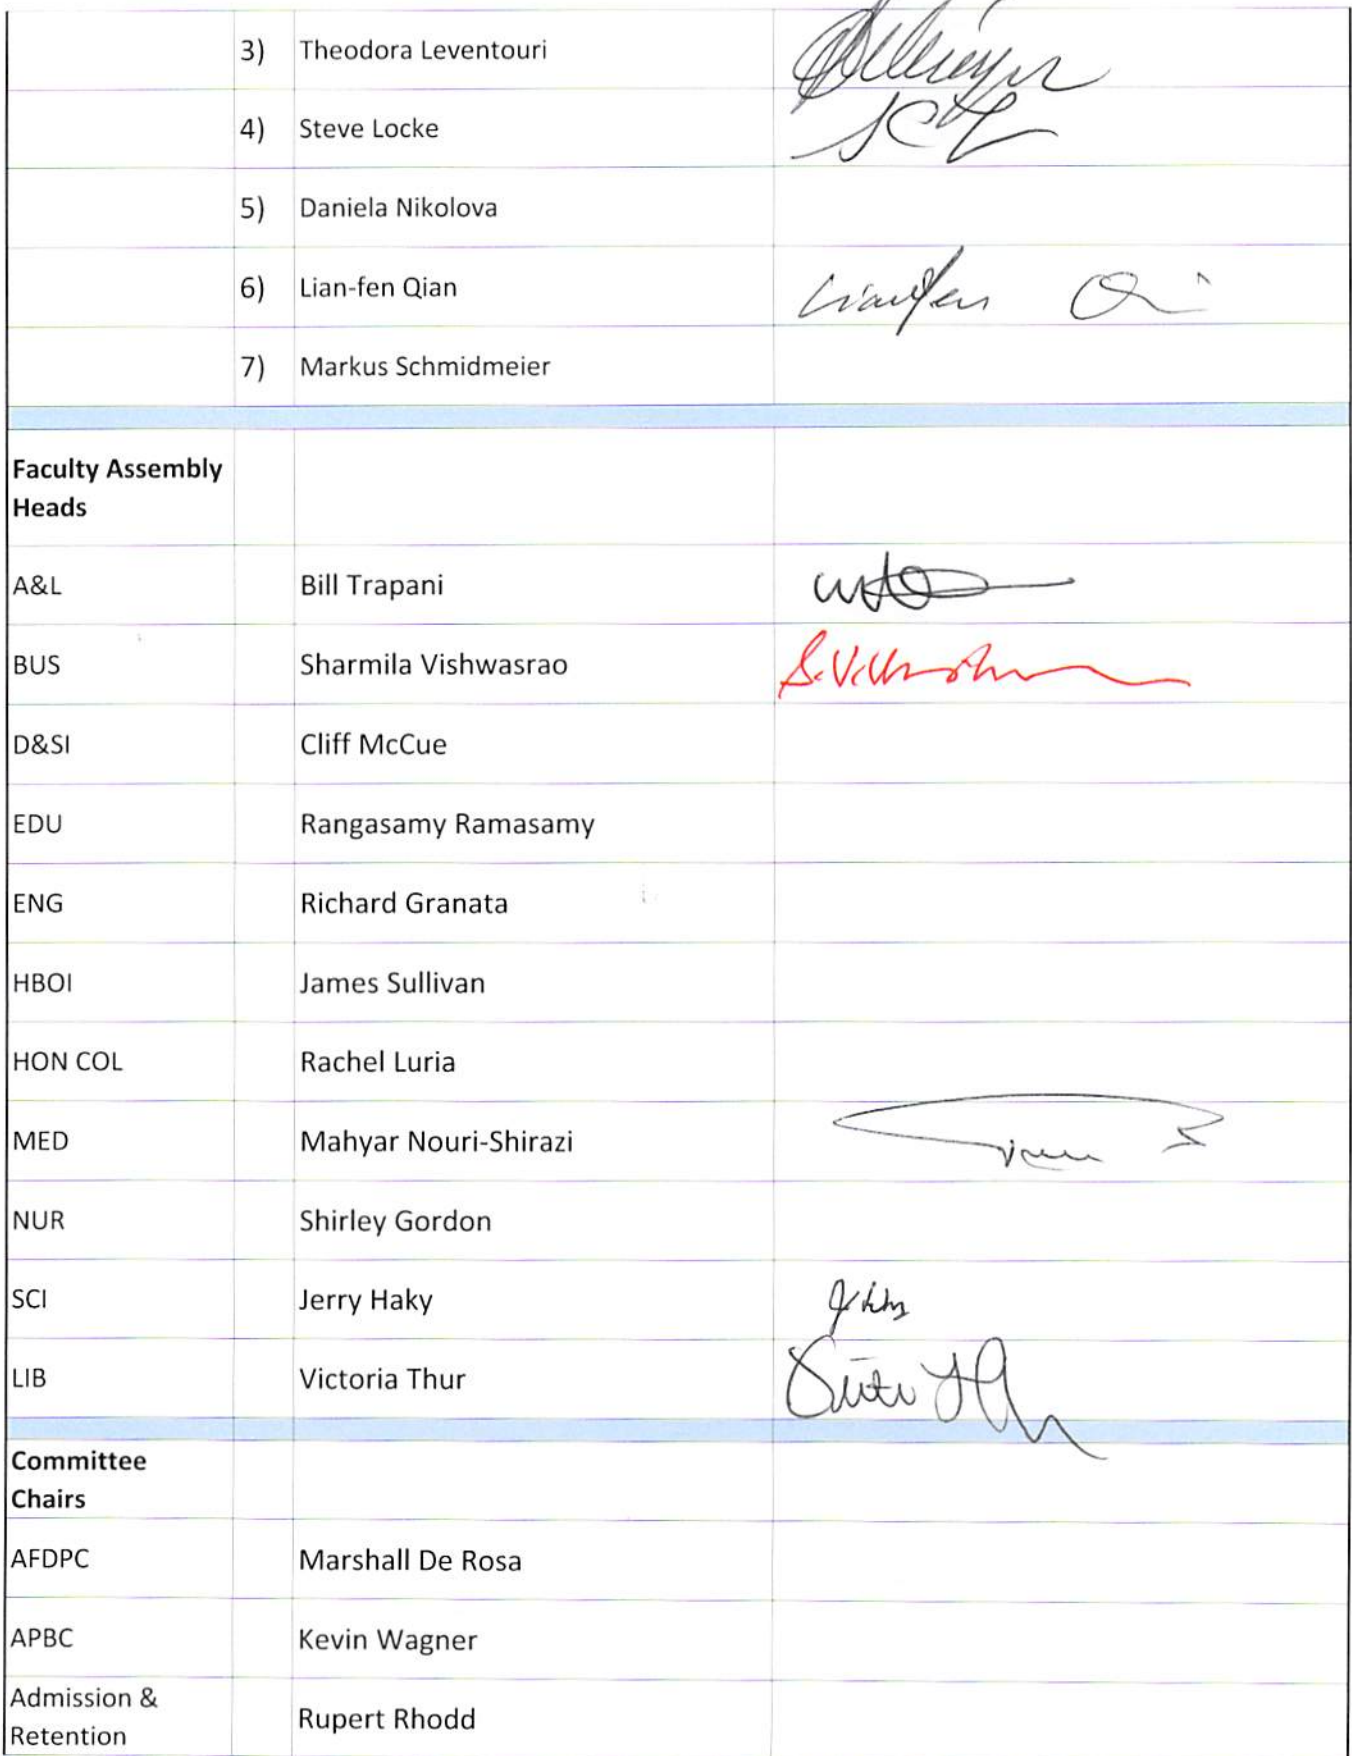 3) Theodora Leventouri
4) Steve Locke
5) Daniela Nikolova
6) Lian-fen Qian
7) Markus Schmidmeier
Faculty Assembly
Heads
A&L Bill Trapani
BUS Sharmila Vishwasrao
D&SI Cliff McCue
EDU Rangasamy Ramasamy
ENG Richard Granata
HBOI James Sullivan
HON COL Rachel Luria
MED Mahyar Nouri-Shirazi
NUR Shirley Gordon
SCI Jerry Haky
LIB Victoria Thur
Committee
Chairs
AFDPC Marshall De Rosa
APBC Kevin Wagner
Admission &
Retention Rupert Rhodd